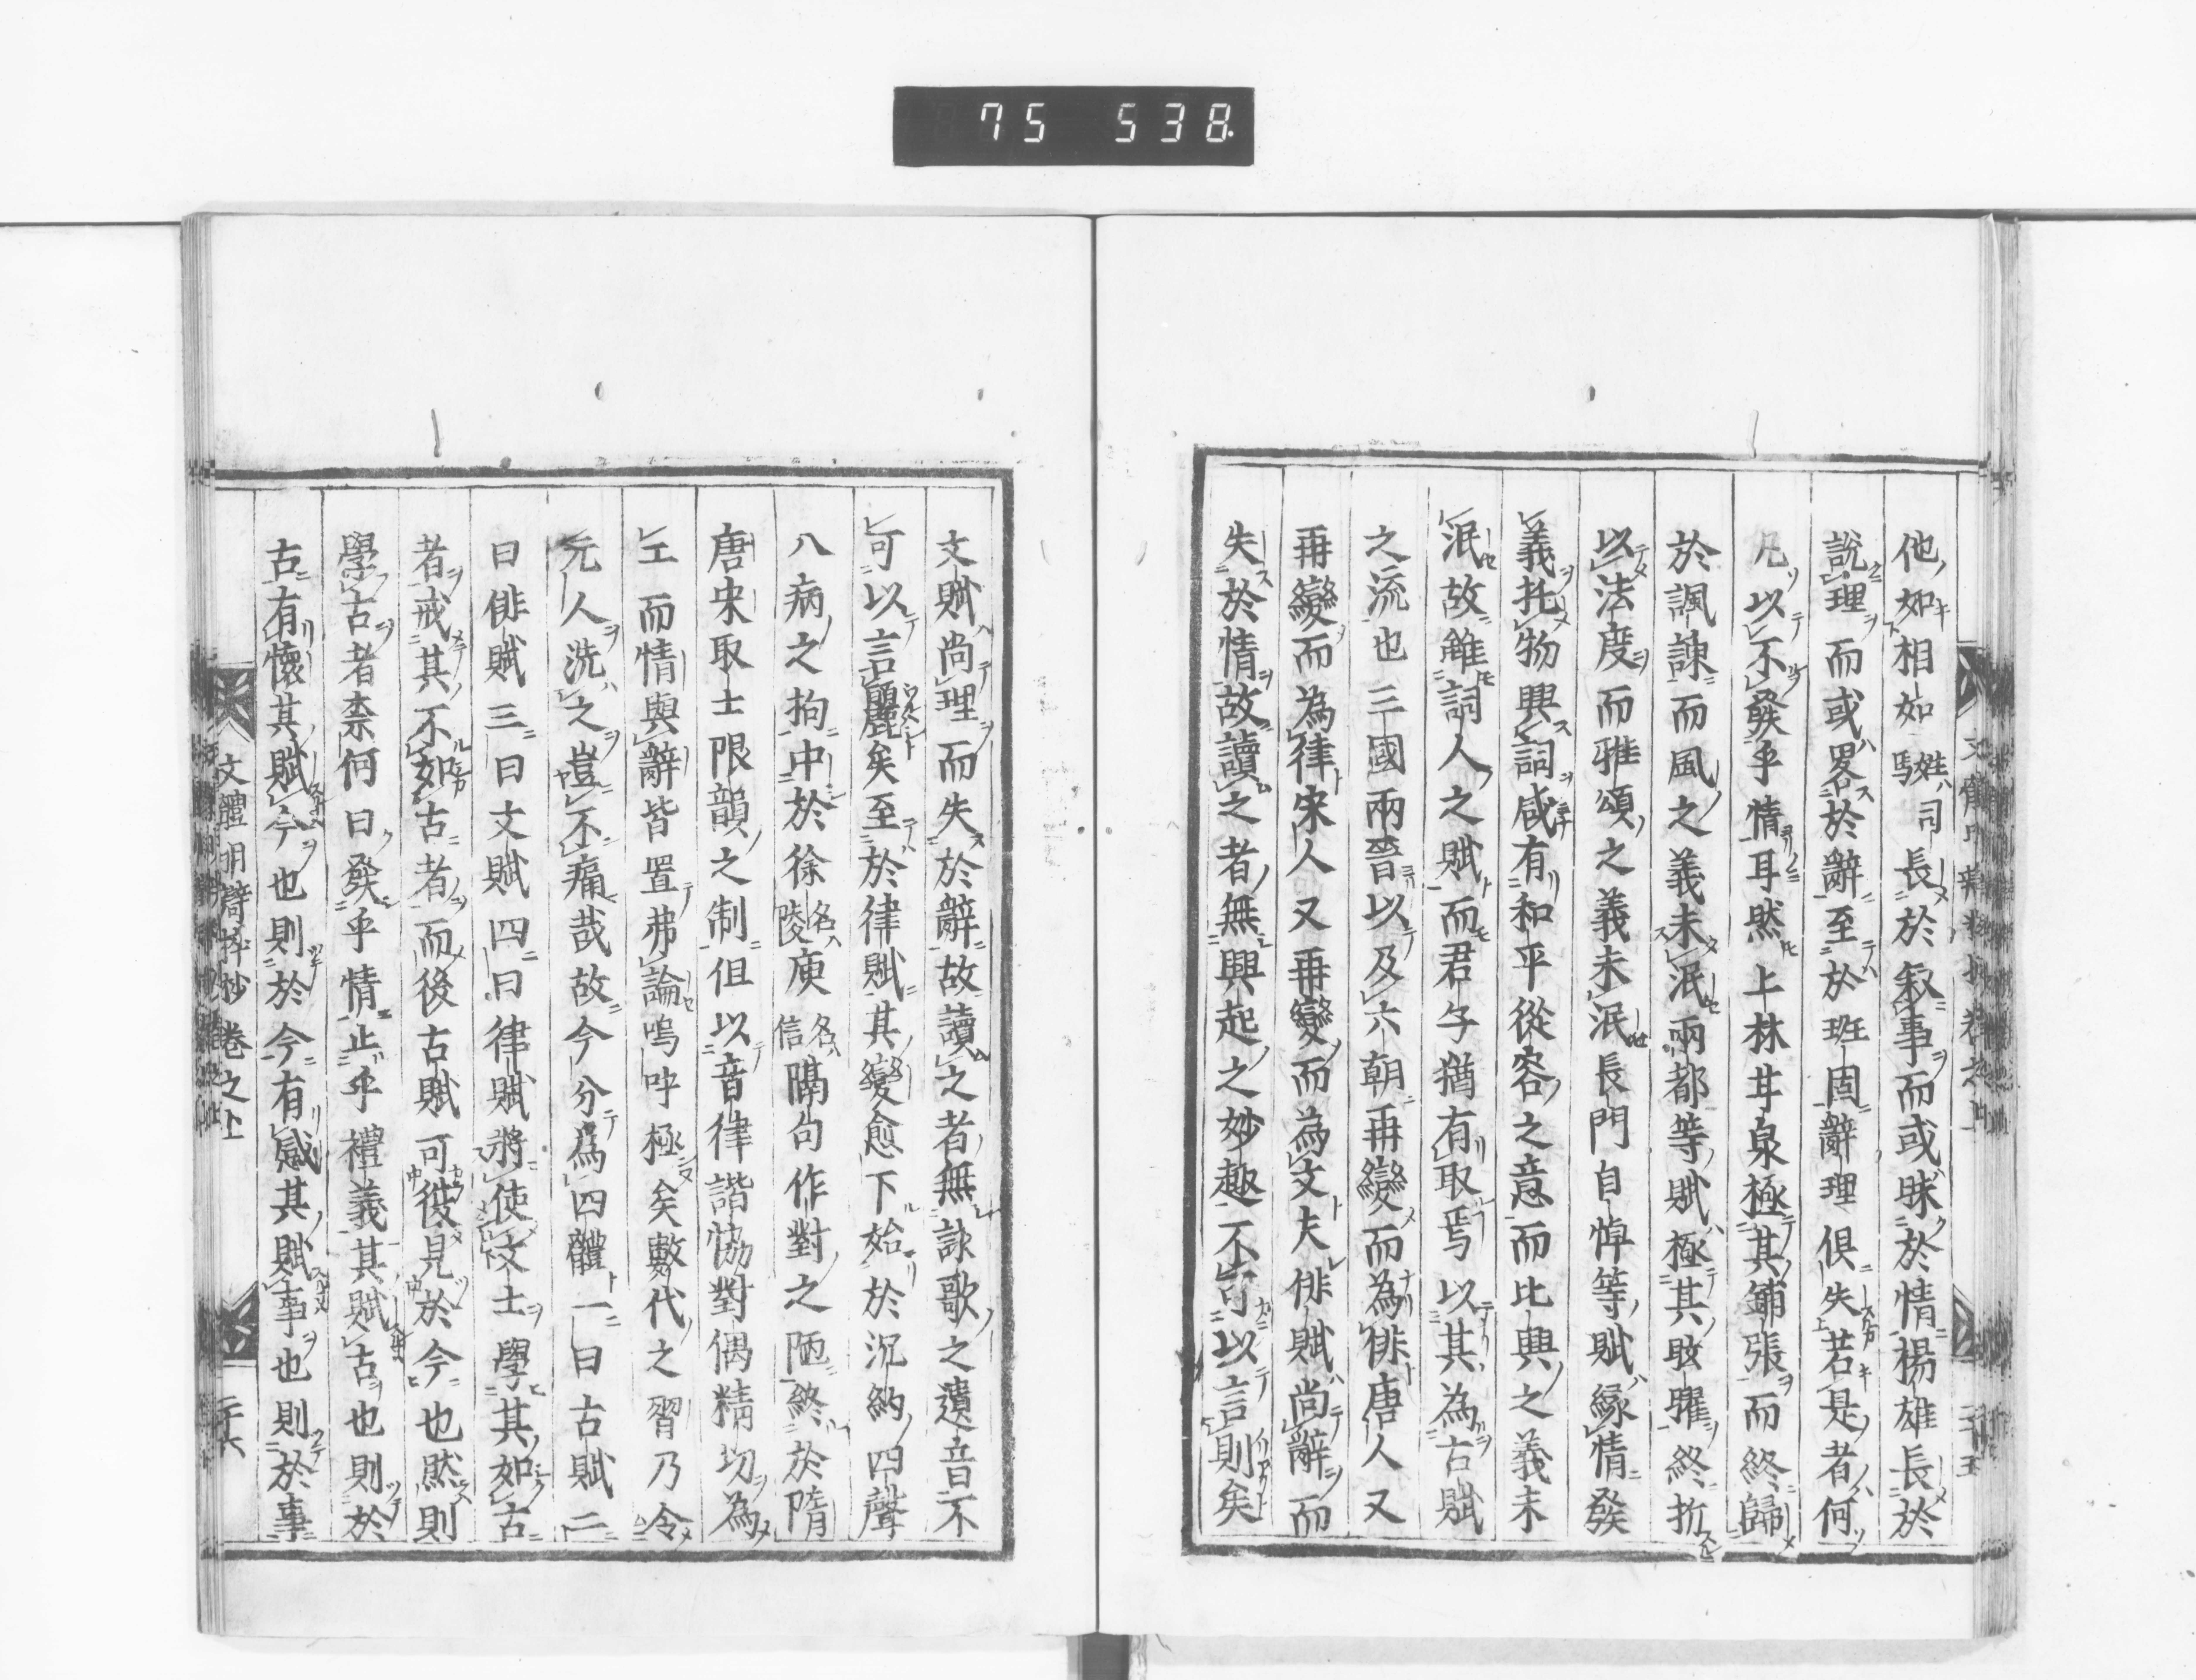 75 538
他如相如姓司馬長於叙事而或昧於情揚雄長於
說理而或畧於辭至於班固辭理俱失若是者何
凡以不發乎情耳然上林甘泉極其鋪張而終歸
於諷諫而風之義未泯兩都等賦極其眩曜終折
以法度而雅頌之義未泯長門自悼等賦縁情發
義托物興詞咸有和平從容之意而比興之義未
泯故雖詞人之賦而君子猶有取焉以其為古賦
之流也三國兩晉以及六朝再變而為俳唐人又
再變而為律宋人又再變而為文夫俳賦尚辭而
失於情故讀之者無興起之妙趣不可以言則矣
文賦尚理而失於辭故讀之者無詠歌之遺音不
可以言麗矣至於律賦其變愈下始於沉約四聲
八病之拘中於徐名陵庾名信隔句作對之陋終於隋
唐宋取士限韻之制但以音律諧恊對偶精切為
工而情與辭皆置弗論嗚呼極矣數代之習乃令
元人洗之豈不痛哉故今分為四體一曰古賦二
曰俳賦三曰文賦四曰律賦將使文士學其如古
者戒其不如古者而後古賦可彼見於今也然則
學古者柰何曰發乎情止乎禮義其賦古也則於
古有懷其賦今也則於今有感其賦事也則於事
文體明辯粹抄 卷之上 二十六